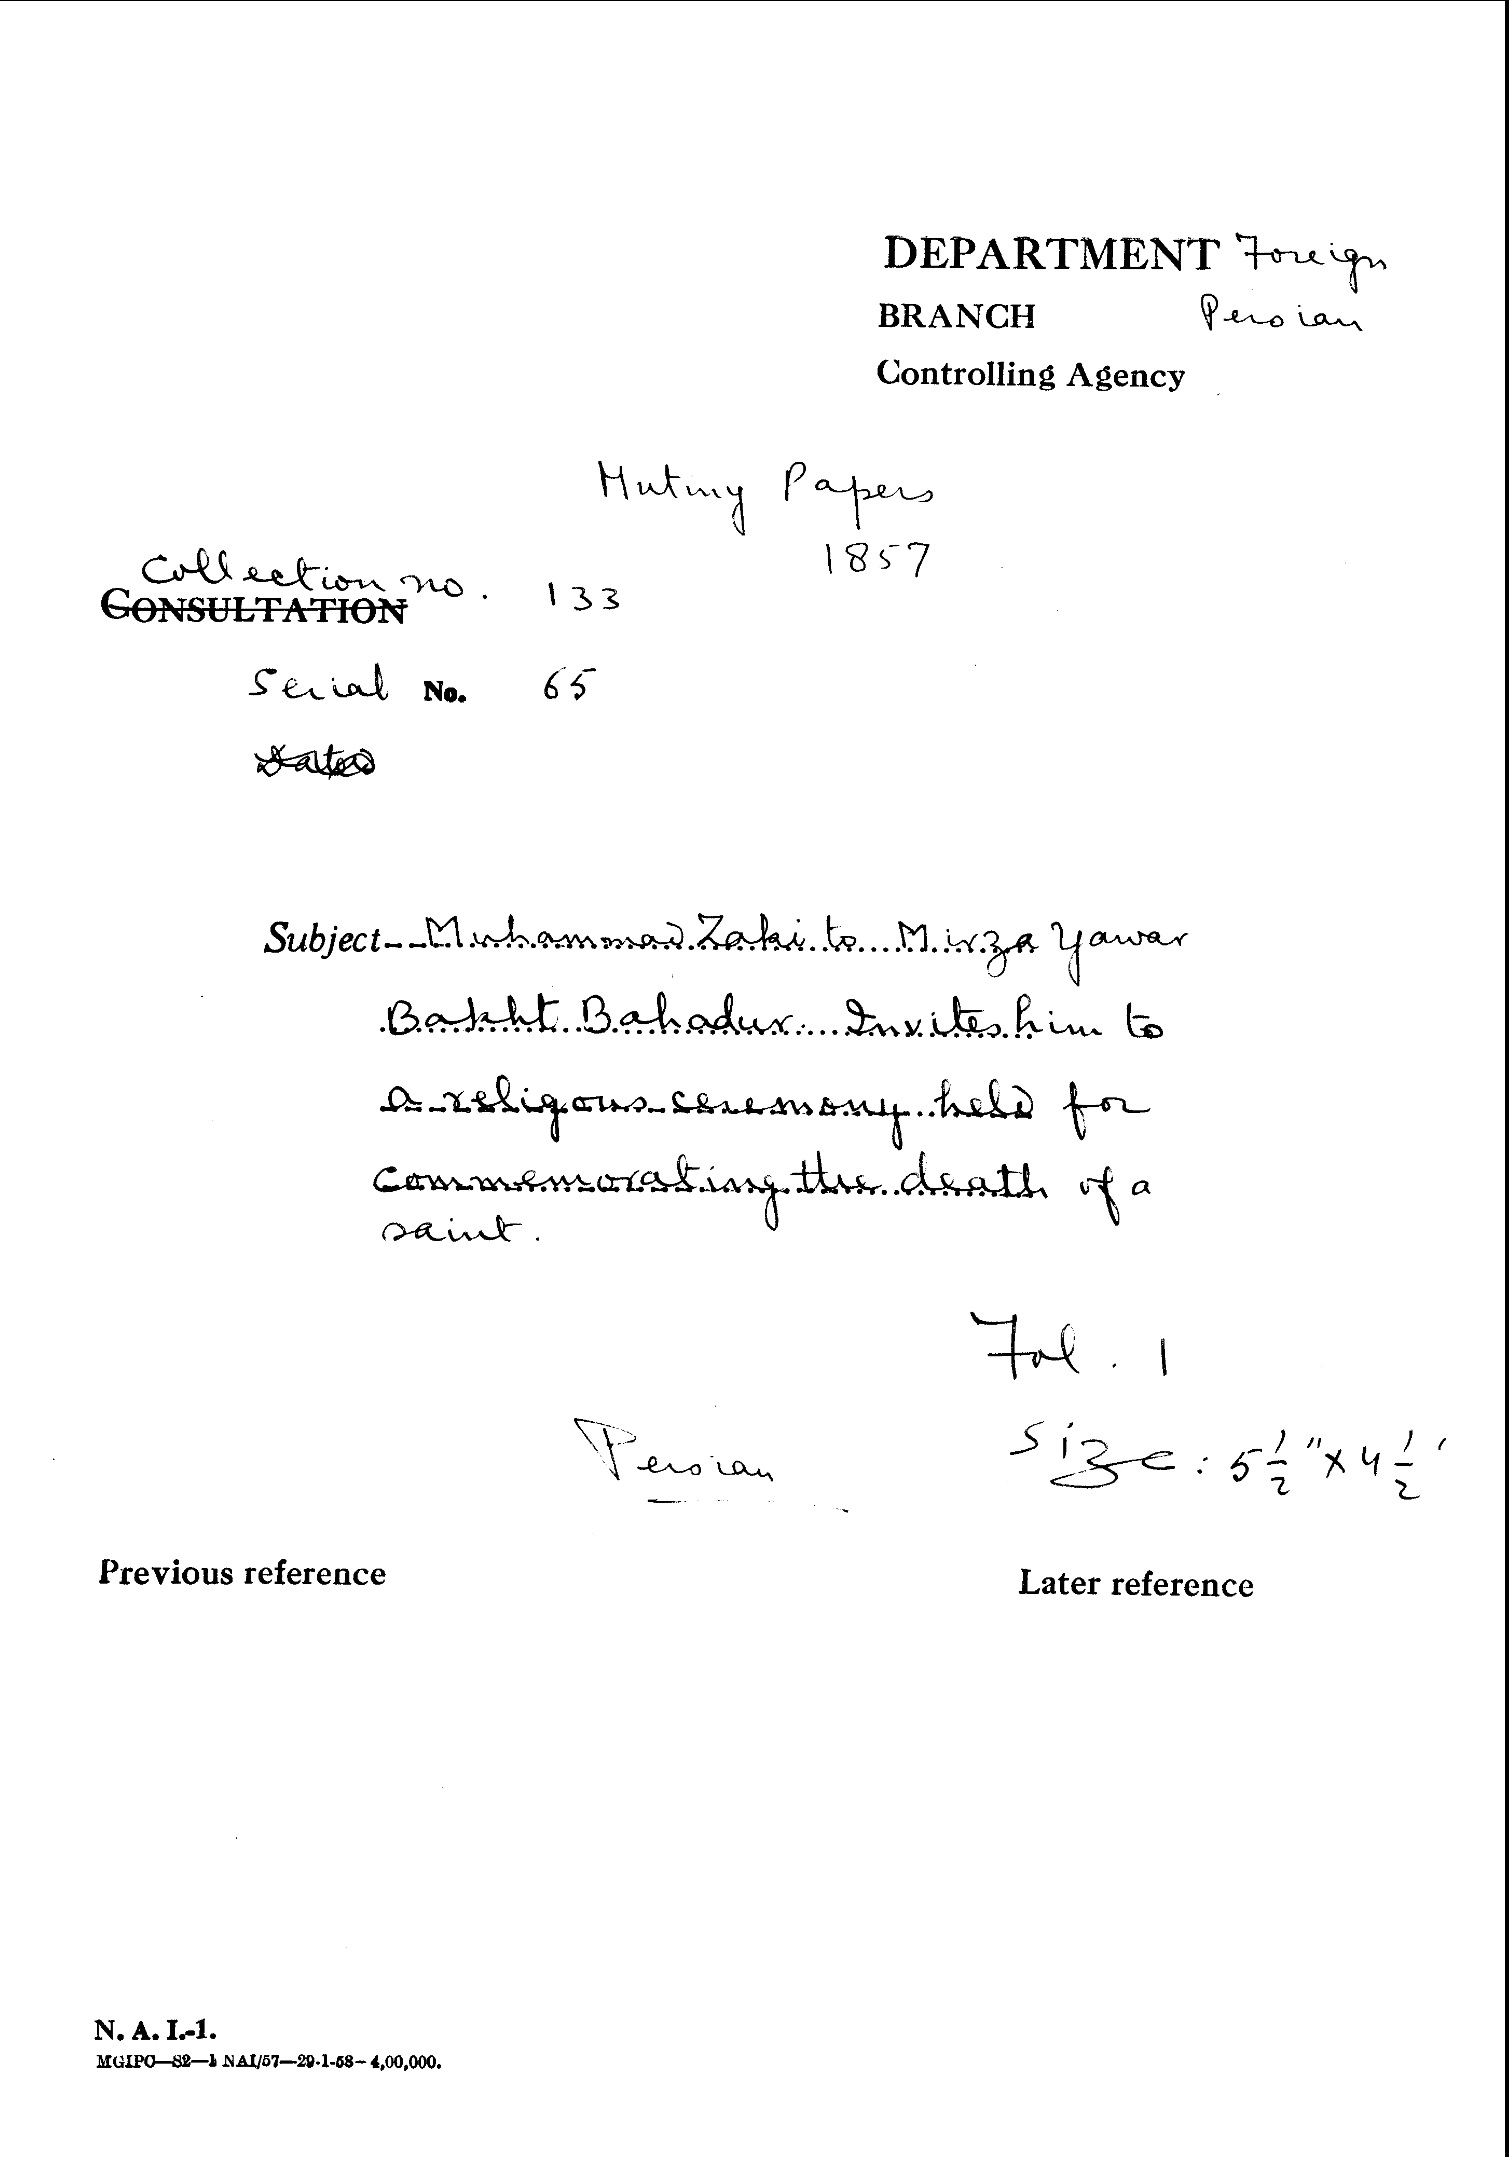 DEPARTMENT Foreign
BRANCH Persian
Controlling Agency
Mutiny Papers
1857
Collection no. 133
CONSULTATION
Serial No. 65
Dated
Subject--Muhammad Zaki to Mirza Yawar
Bakht Bahadur. Invites him to
a religous ceremony held for
commemorating the death of a
saint.
Fol. 1
Persian
Size: 5 1/2" x 4 1/2'
Previous reference
Later reference
N. A. I.-1.
MGIPO—S2—1 NAI/57—29-1-58—4,00,000.